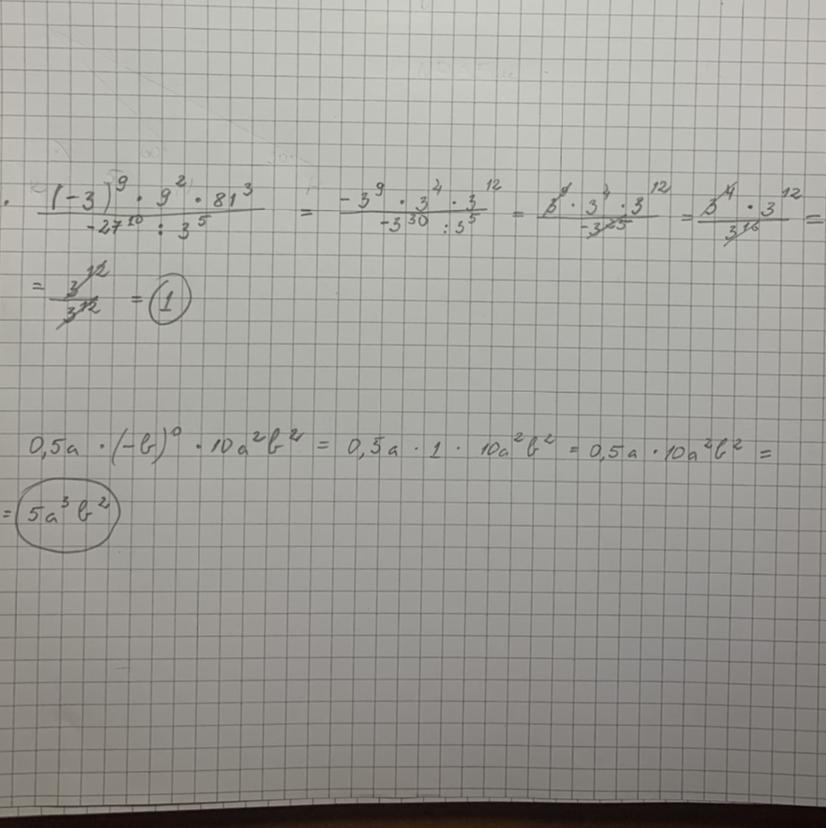 (-3)⁹ · 9² · 81³ / -27¹⁰ : 3⁵ = -3⁹ · 3⁴ · 3¹² / -3³⁰ : 3⁵ = 3⁹ · 3⁴ · 3¹² / -3²⁵ = 3⁴ · 3¹² / 3¹⁶ =
= 3¹² / 3¹² = 1
0,5a · (-b)⁰ · 10a²b² = 0,5a · 1 · 10a²b² = 0,5a · 10a²b² =
= 5a³b²